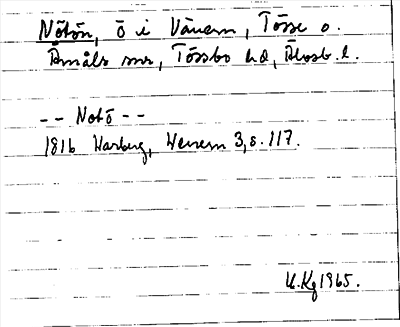 Nötön, ö i Vänern, Tösse o.
Åmåls snr, Tössbo hd, Älvsb. l.
-- Notö --
1816 Warberg, Wenern 3, s. 117.
K.Kg 1965.